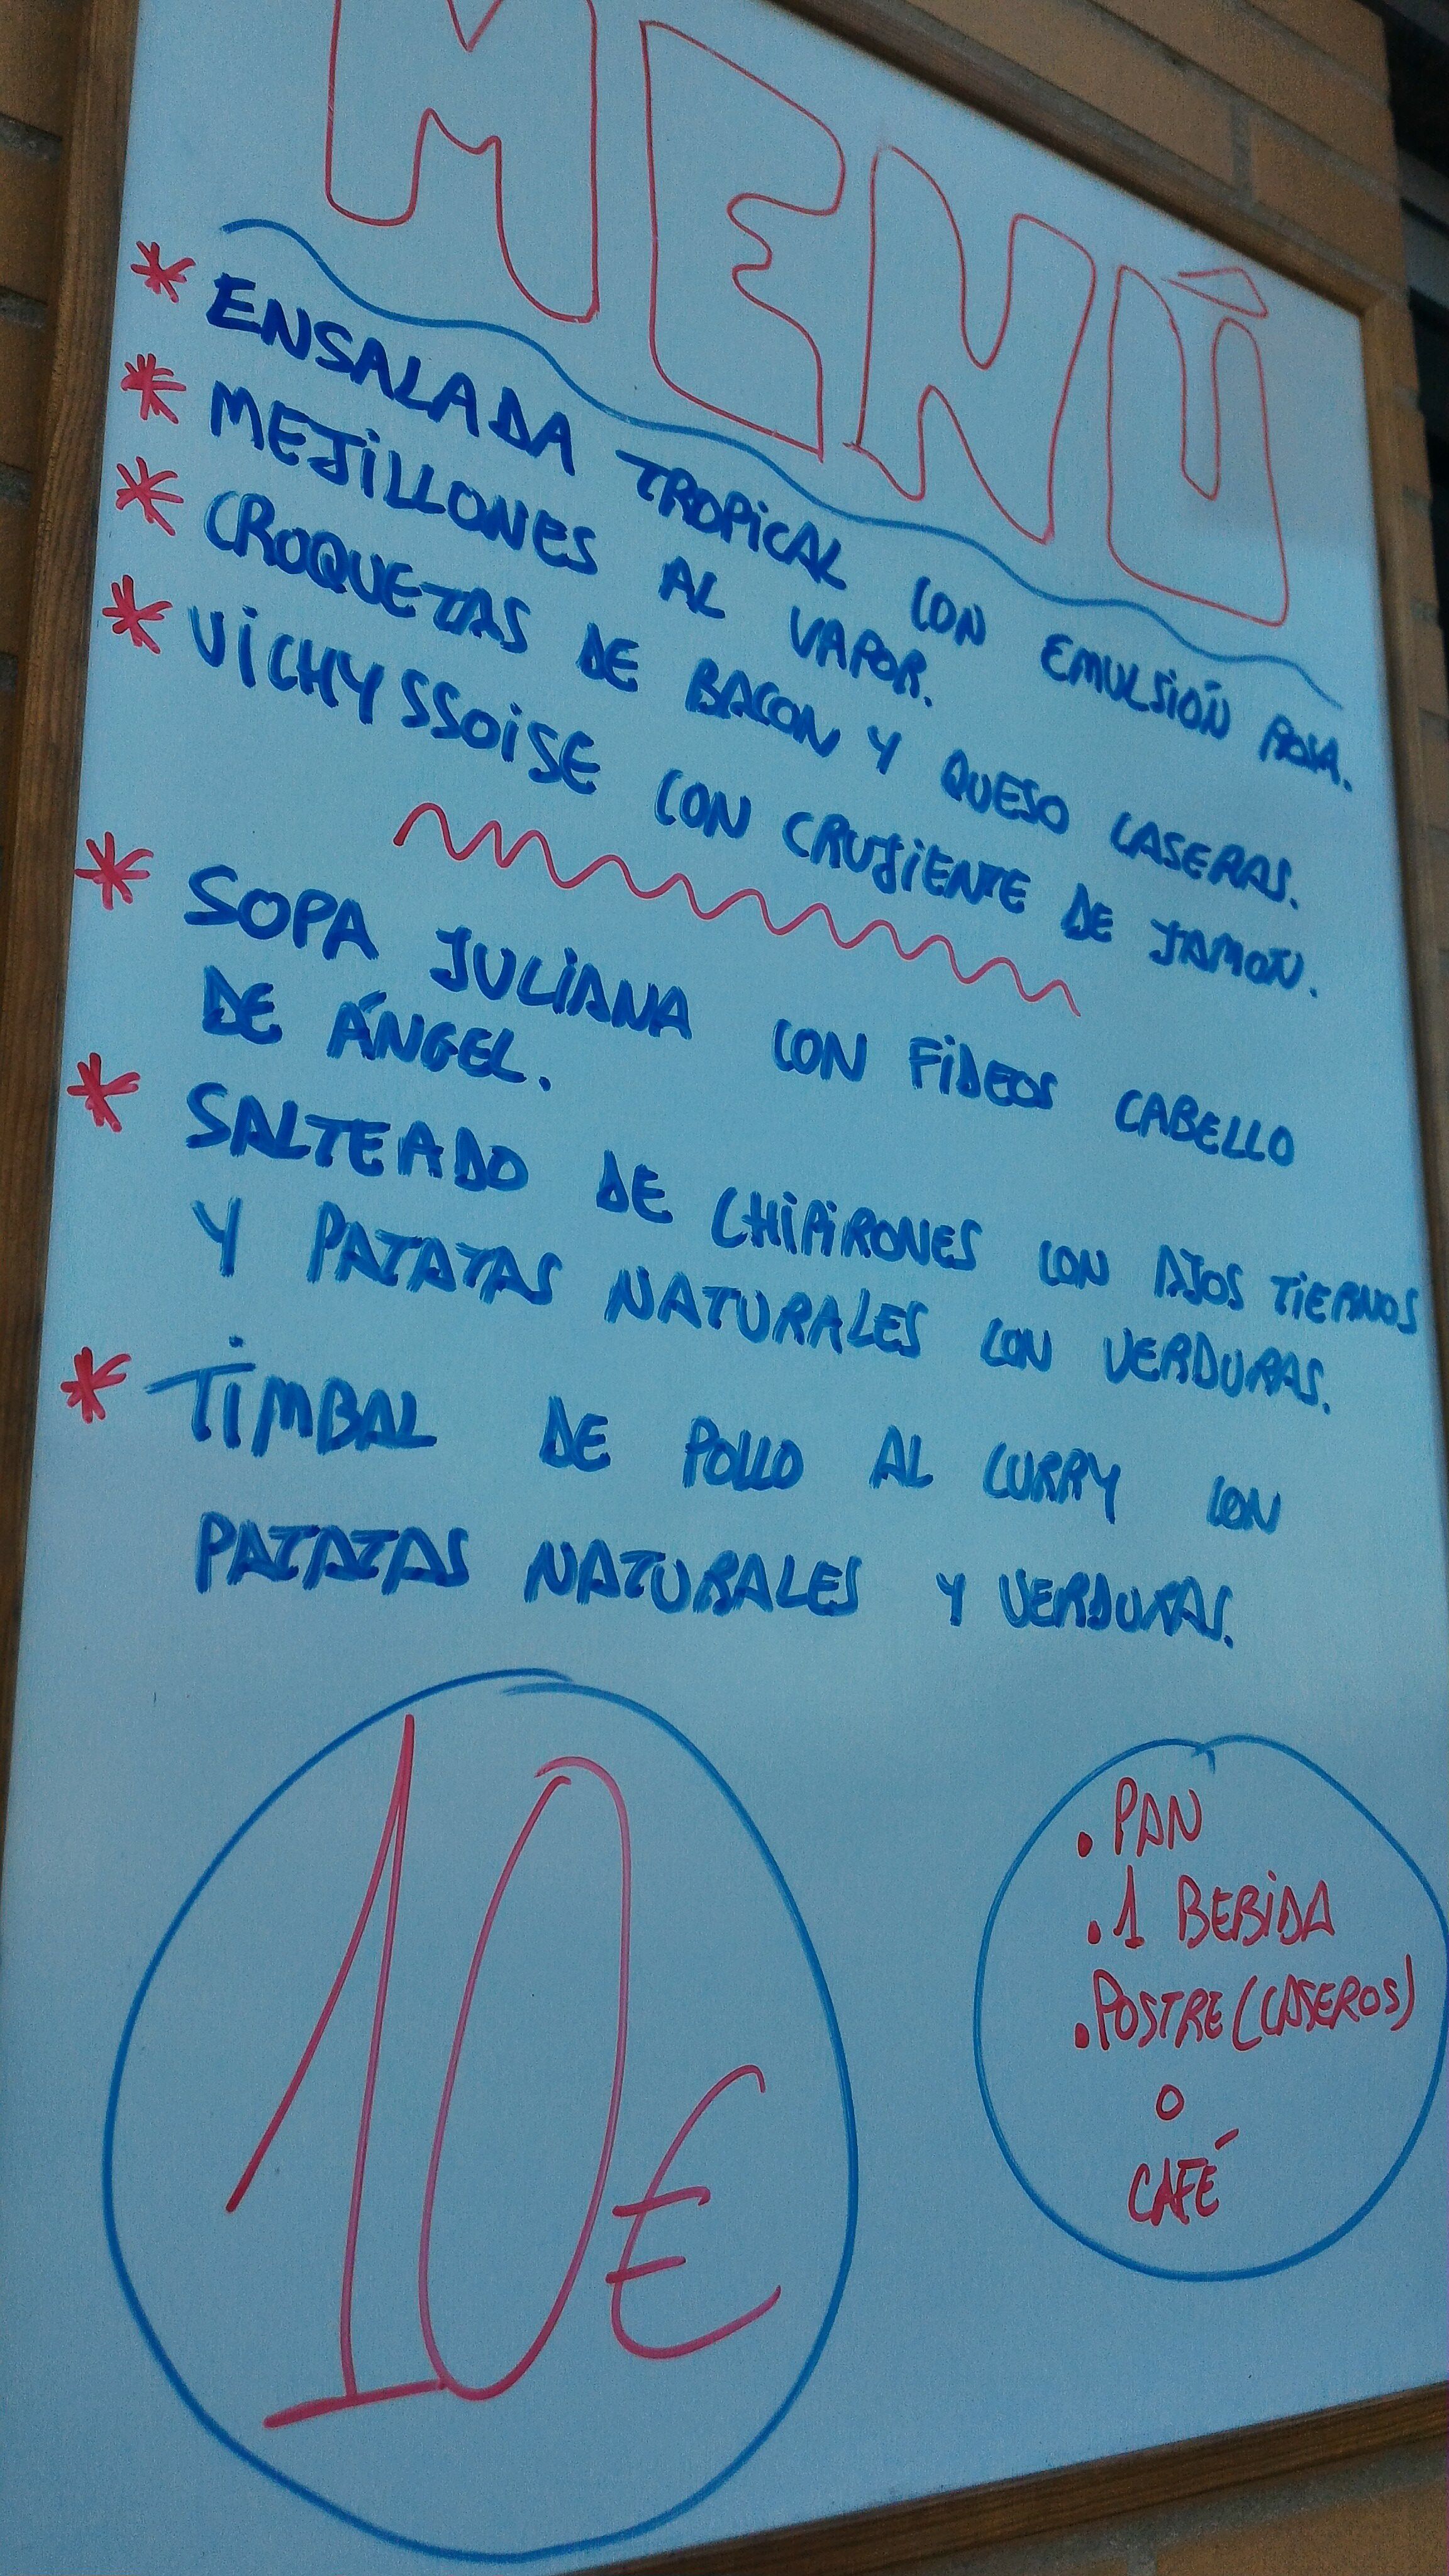 MENÚ
* ENSALADA TROPICAL CON EMULSIÓN ROSA.
* MEJILLONES AL VAPOR.
* CROQUETAS DE BACON Y QUESO CASERAS.
* VICHYSSOISE CON CRUJIENTE DE JAMON.
* SOPA JULIANA CON FIDEOS CABELLO
DE ÁNGEL.
* SALTEADO DE CHIPIRONES CON AJOS TIERNOS
Y PATATAS NATURALES CON VERDURAS.
* TIMBAL DE POLLO AL CURRY CON
PATATAS NATURALES Y VERDURAS.
10€
. PAN
. 1 BEBIDA
. POSTRE (CASEROS)
O
CAFÉ